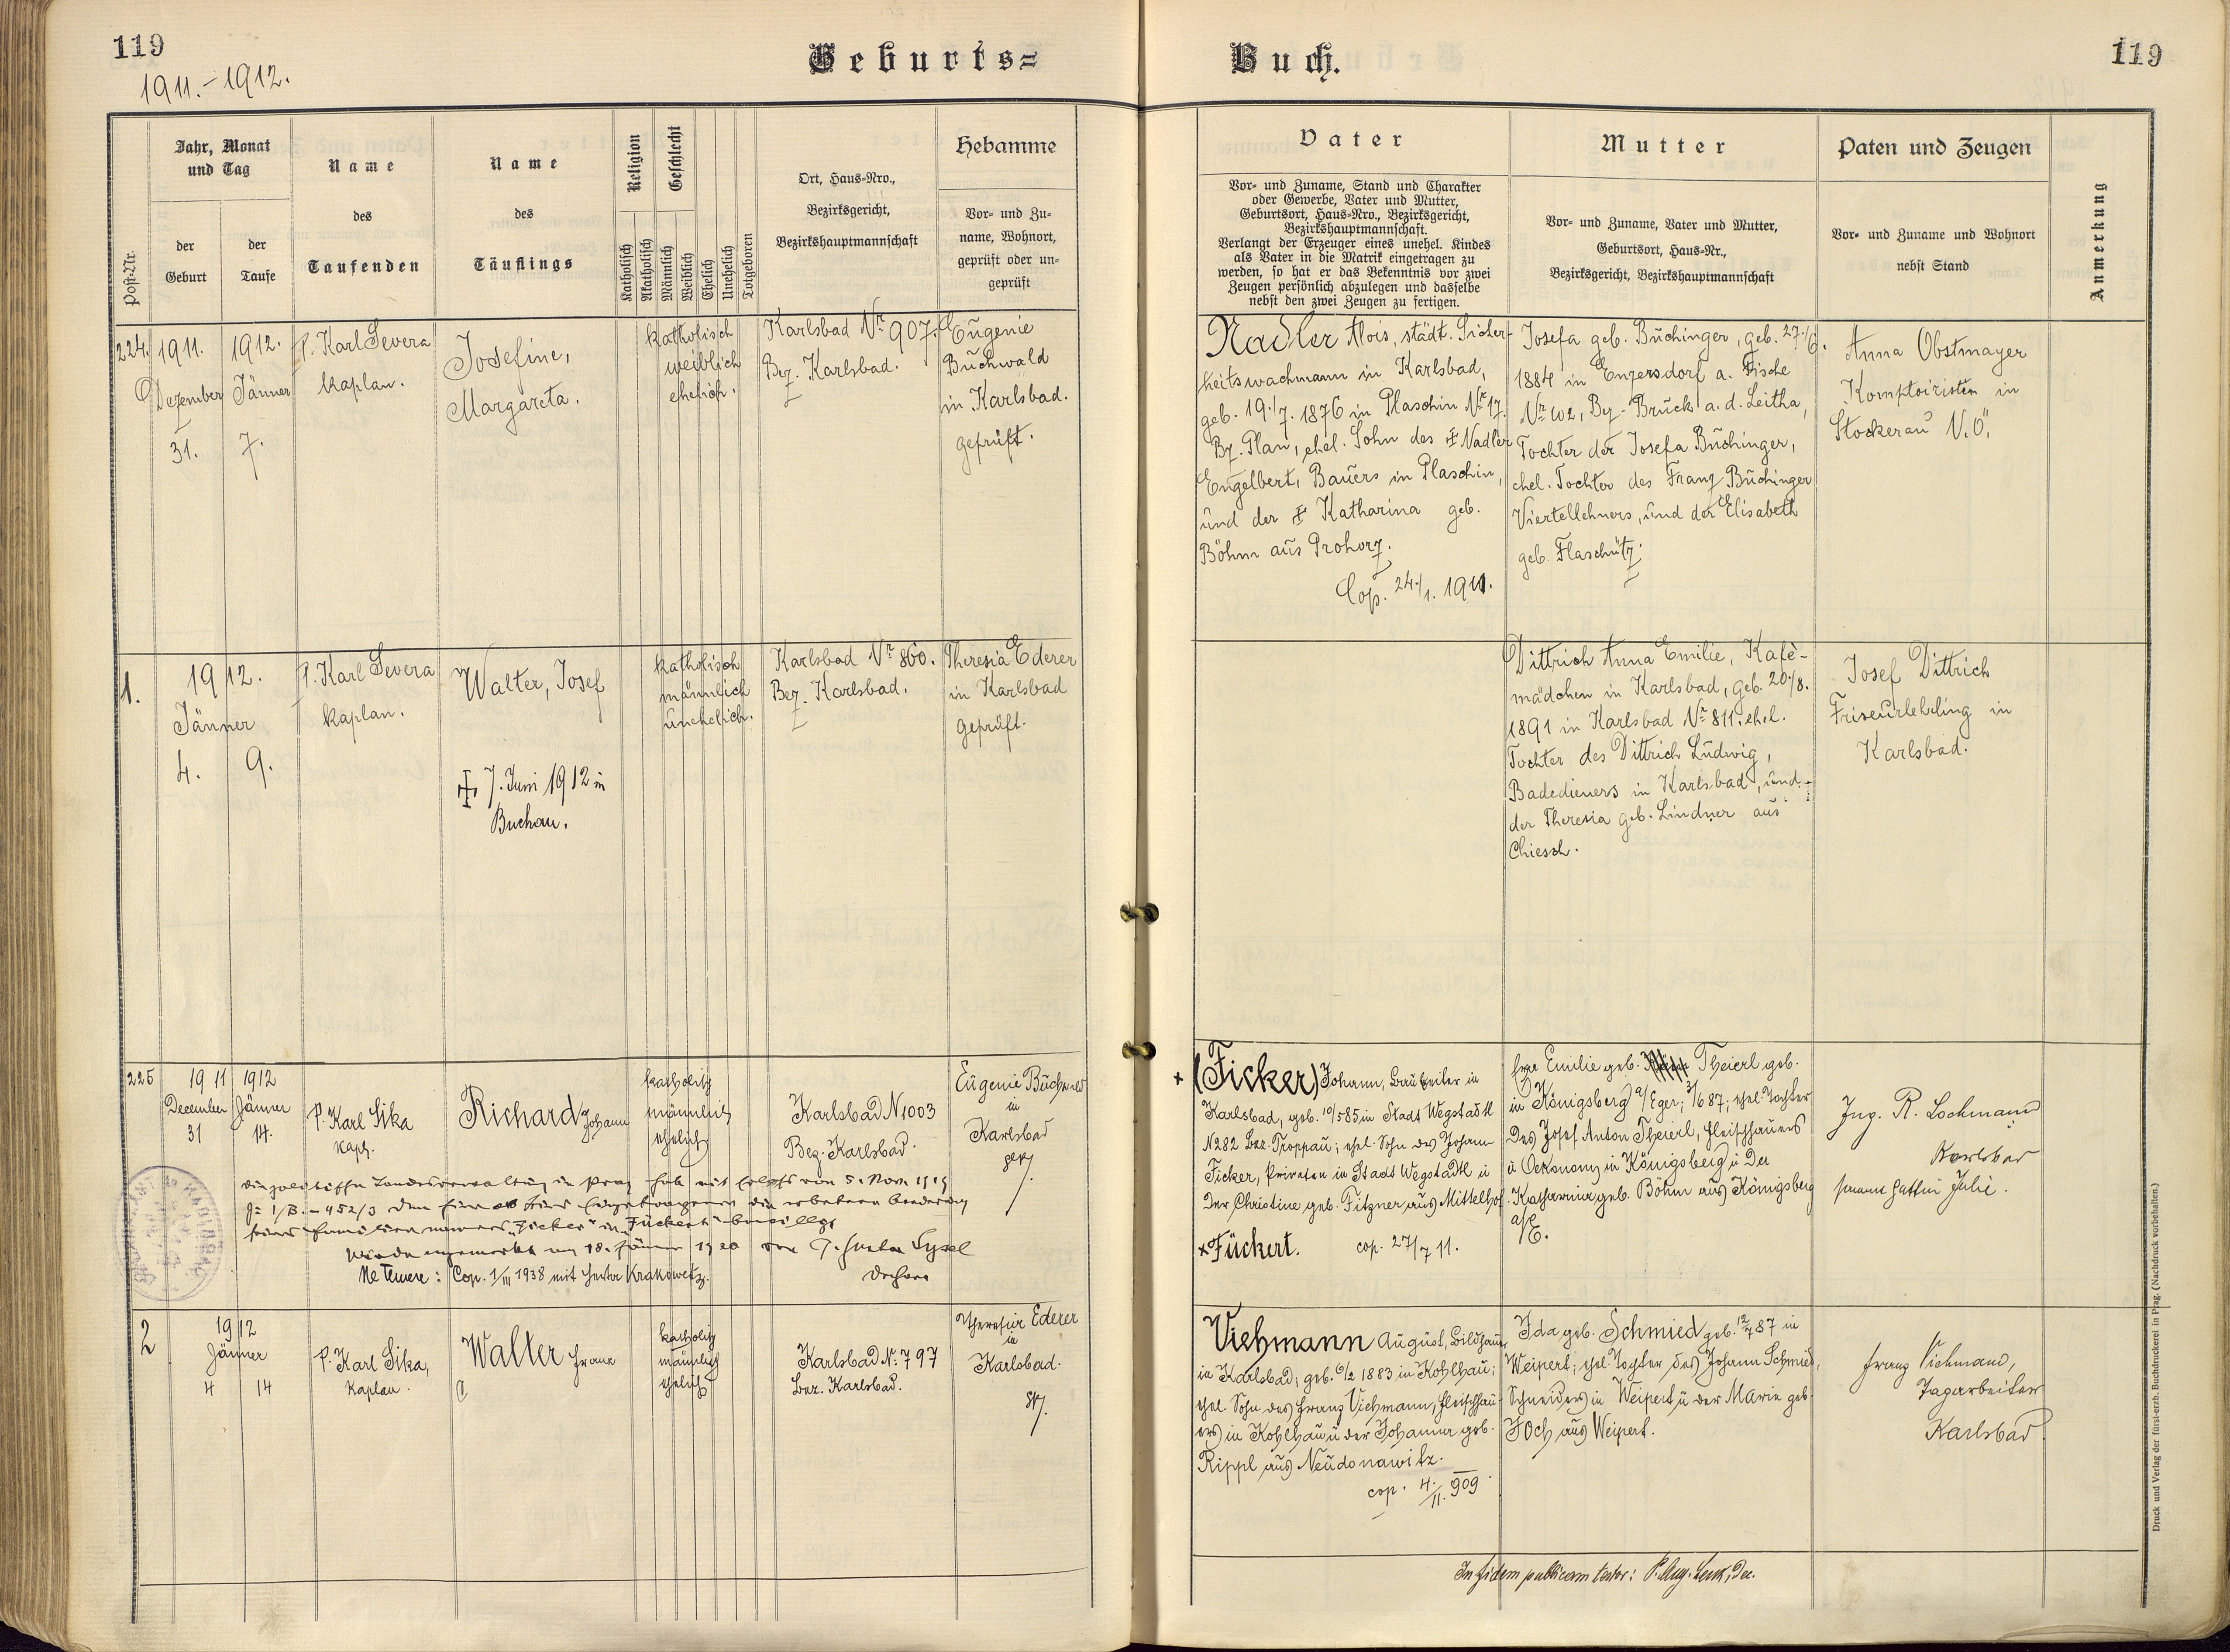 119
1911.-1912.
Geburts=
Buch.
119
Post-Nr.
Jahr, Monat
und Tag
der
Geburt
der
Taufe
Name
des
Taufenden
Name
des
Täuflings
Religion
Katholisch
Akatholisch
Geschlecht
Männlich
Weiblich
Ehelich
Unehelich
Totgeboren
Ort, Haus-Nro.,
Bezirksgericht,
Bezirkshauptmannschaft
Hebamme
Vor- und Zu-
name, Wohnort,
geprüft oder un-
geprüft
Vater
Vor- und Zuname, Stand und Charakter
oder Gewerbe, Vater und Mutter,
Geburtsort, Haus-Nro., Bezirksgericht,
Bezirkshauptmannschaft.
Verlangt der Erzeuger eines unehel. Kindes
als Vater in die Matrik eingetragen zu
werden, so hat er das Bekenntnis vor zwei
Zeugen persönlich abzulegen und dasselbe
nebst den zwei Zeugen zu fertigen.
Mutter
Vor- und Zuname, Vater und Mutter,
Geburtsort, Haus-Nr.,
Bezirksgericht, Bezirkshauptmannschaft
Paten und Zeugen
Vor- und Zuname und Wohnort
nebst Stand
Anmerkung
224.
1911.
Dezember
31.
1912.
Jänner
7.
P. Karl Severa
Kaplan.
Josefine,
Margareta.
katholisch
weiblich
ehelich.
Karlsbad Nr 907.
Bez. Karlsbad.
Eugenie
Buchwald
in Karlsbad.
geprüft.
Nadler Alois, städt. Sicher-
heitswachmann in Karlsbad,
geb. 19./7. 1876 in Plaschin Nr 17.
Bz. Plan, ehel. Sohn des ‡ Nadler
Engelbert, Bauers in Plaschin,
und der ‡ Katharina geb.
Böhm aus Prohorz.
Cop. 24./1. 1911.
Josefa geb. Buchinger, geb. 27./6.
1884 in Enzersdorf a. Fische
Nr 102, Bz. Bruck a. d. Leitha,
Tochter der Josefa Buchinger,
ehel. Tochter des Franz Buchinger
Viertellehners, und der Elisabeth
geb. Flaschütz.
Anna Obstmayer
Komptoiristin in
Stockerau N.Ö.
1.
1912.
Jänner
4. 9.
P. Karl Severa
Kaplan.
Walter, Josef
‡ 7. Juni 1912 in
Buchau.
katholisch
männlich
unehelich.
Karlsbad Nr 860.
Bez. Karlsbad.
Theresia Ederer
in Karlsbad
geprüft.
Dittrich Anna Emilie, Kafè-
mädchen in Karlsbad, geb. 20./8.
1891 in Karlsbad Nr 811. ehel.
Tochter des Dittrich Ludwig,
Badedieners in Karlsbad, und
der Theresia geb. Lindner aus
Chiesch.
Josef Dittrich
Friseurlehrling in
Karlsbad.
225
1911
December
31
1912
Jänner
14.
P. Karl Sika
Kapl.
Richard Johann
katholisch
männlich
ehelich
Karlsbad N 1003
Bez. Karlsbad.
Eugenie Buchwald
in
Karlsbad
gepr.
Die politische Landesverwaltung in Prag hat mit Erlass vom 5. Nov. 1919
seines Familiennamens "Ficker" in "Fückert" bewilligt
Wurde angemerkt am 18. Jänner 1920
Dechant
Ne Temere: Cop. 1/III 1938 mit Herta Krakowetz.
+ (Ficker) Johann, Bauleiter in
Karlsbad, geb. 10/5 85 in Stadt Wegstädtl
N 282 Bez. Troppau; ehel. Sohn des Johann
Ficker, Privaten in Stadt Wegstädtl u
der Christine geb. Fitzner aus Mittelhof
x Fückert. cop. 27/7 11.
Emilie geb. Theierl geb.
in Königsberg a/Eger; 3/1 687; ehel. Tochter
des Josef Anton Theierl, Fleischhauers
u Oekonom in Königsberg u der
Katharina geb. Böhm aus Königsberg
a/E.
Ing. R. Lochmann
Karlsbad
seine Gattin Julie.
2
1912
Jänner
4 14
P. Karl Sika,
Kaplan.
Walter Franz
katholisch
männlich
ehelich
Karlsbad N. 797
Bez. Karlsbad.
Theresia Ederer
in
Karlsbad.
gepr.
Viehmann August, Bildhauer
in Karlsbad; geb. 6/2 1883 in Kohlhau;
ehel. Sohn des Franz Viehmann, Fleischhau-
ers in Kohlhau u der Johanna geb.
Rippl aus Neudonawitz.
cop. 4./11. 909.
Ida geb. Schmied geb. 12/7 87 in
Weipert; ehel Tochter des Johann Schmied,
Schneiders in Weipert u der Marie geb.
Joch aus Weipert.
Franz Viehmann,
Tagarbeiter
Karlsbad
In fidem publicam testor: P. Aug. Lenk, Dec.
Druck und Verlag der fürst-erzb. Buchdruckerei in Prag. (Nachdruck vorbehalten.)